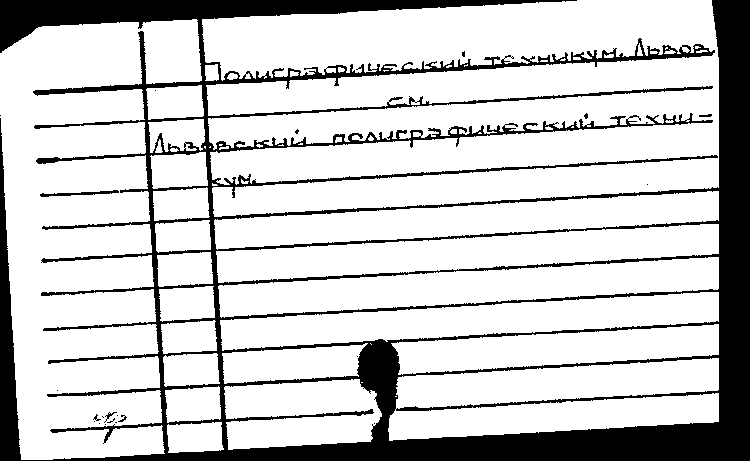 Полиграфический техникум. Львов
см.
Львовский полиграфический техни-
кум.